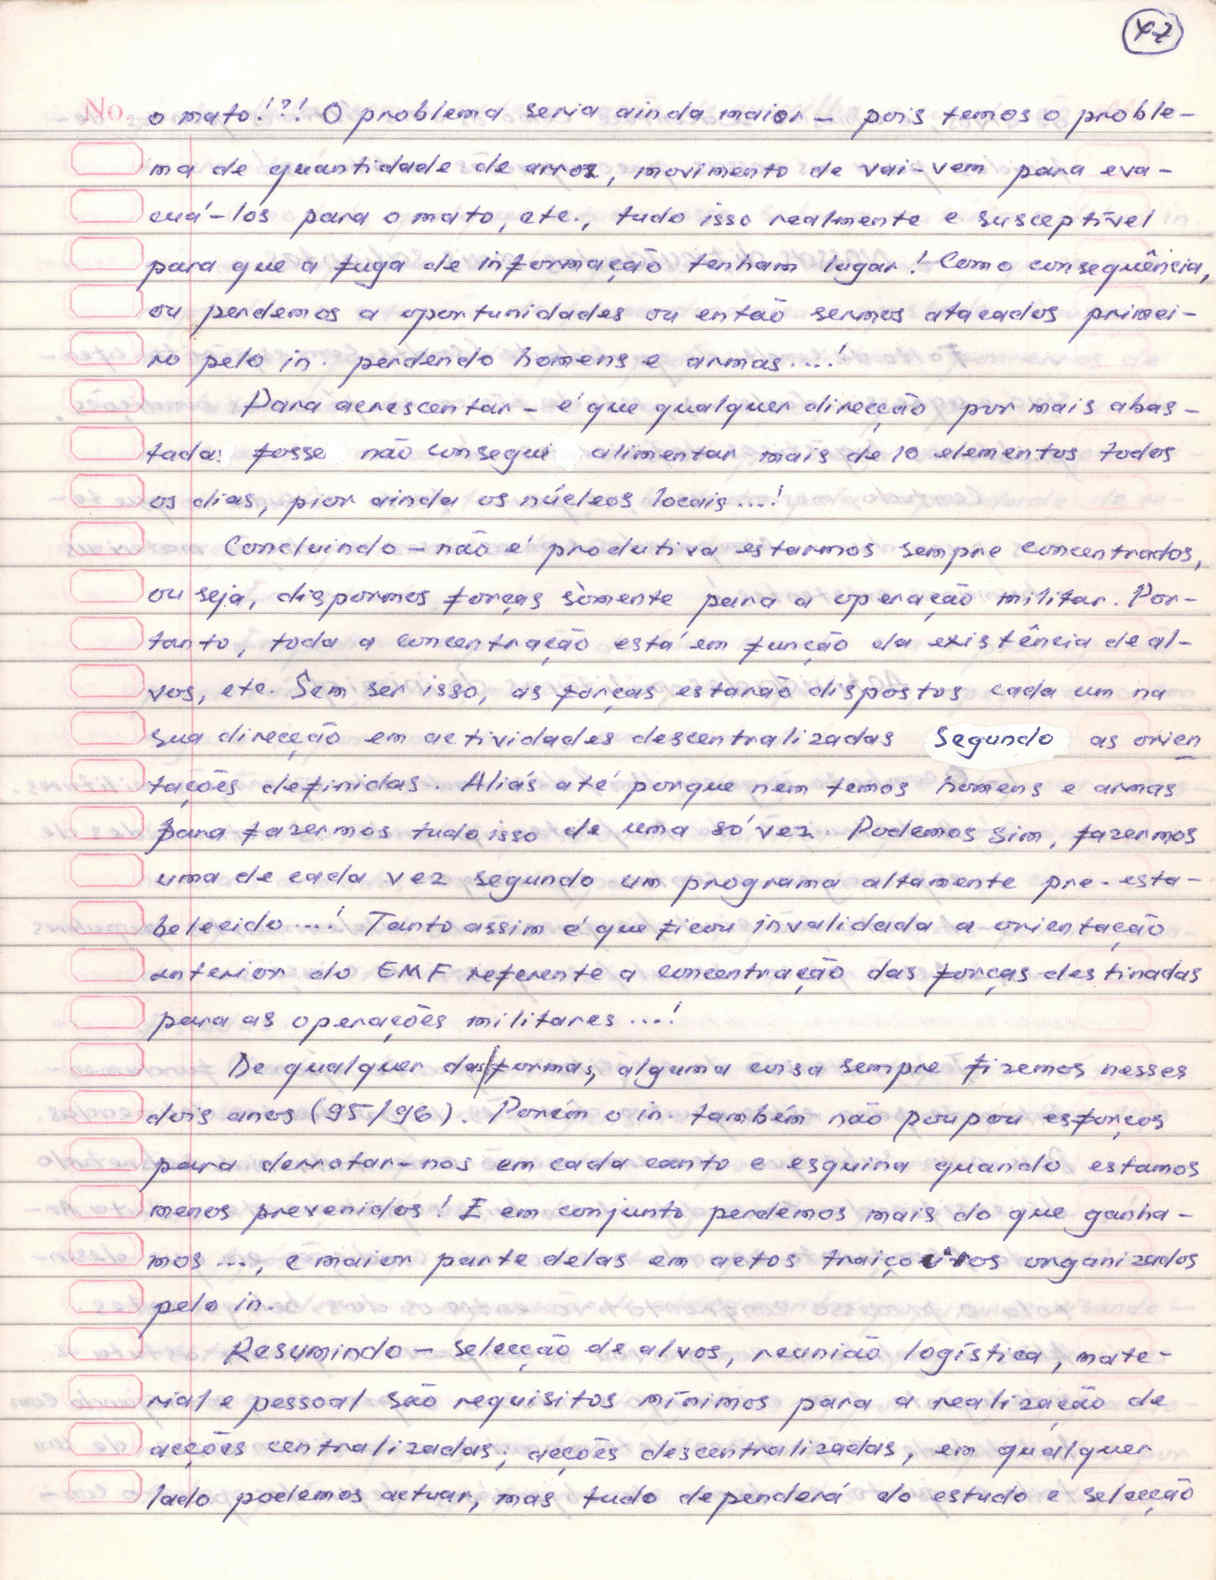 47
No. o mato!?! O problema seria ainda maior - pois temos o proble-
ma de quantidade de arroz, movimento de vai-vem para eva-
cuá-los para o mato, etc., tudo isso realmente e susceptível
para que a fuga de informação tenham lugar! Como consequência,
ou perdemos a oportunidades ou então sermos atacados primei-
ro pelo in. perdendo homens e armas....!
Para acrescentar - é que qualquer direcção por mais abas-
tada: fosse não consegui alimentar mais de 10 elementos todos
os dias, pior ainda os núcleos locais...!
Concluindo - não é produtiva estarmos sempre concentrados,
ou seja, dispormos forças sòmente para a operação militar. Por-
tanto, toda a concentração está em função da existência de al-
vos, etc. Sem ser isso, as forças estarão dispostos cada um na
sua direcção em actividades descentralizadas segundo as orien
tações definidas. Aliás até porque nem temos homens e armas
para fazermos tudo isso de uma só vez. Podemos sim, fazermos
uma de cada vez segundo um programa altamente pre-esta-
belecido....! Tanto assim é que ficou invalidada a orientação
anterior do EMF referente a concentração das forças destinadas
para as operações militares....!
De qualquer das/formas, alguma coisa sempre fizemos nesses
dois anos (95/96). Porém o in. também não poupou esforços
para derrotar-nos em cada canto e esquina quando estamos
menos prevenidos! E em conjunto perdemos mais do que ganha-
mos...., e maior parte delas em actos traiçoeiros organizados
pelo in.
Resumindo - selecção de alvos, reunião logística, mate-
rial e pessoal são requisitos mínimos para a realização de
acções centralizadas; acções descentralizadas, em qualquer
lado podemos actuar, mas tudo dependerá do estudo e selecção